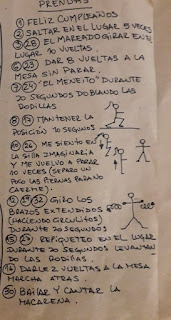 PRENDAS
① FELIZ CUMPLEAÑOS
② SALTAR EN EL LUGAR 5 VECES
③ 28 EL MAREADO GIRAR EN EL
LUGAR 10 VUELTAS.
⑥ 23 DAR 8 VUELTAS A LA
MESA SIN PARAR.
⑦ 24 "EL MENEITO" DURANTE
20 SEGUNDOS DOBLANDO LAS
RODILLAS
⑧ 17 MANTENER LA
POSICIÓN 10 SEGUNDOS
⑩ 26 ME SIENTO EN
LA SILLA IMAGINARIA
Y ME VUELVO A PARAR
10 VECES (SEPARO UN
POCO LAS PIERNAS PARA NO
CAERME).
⑫ 32 GIRO LOS
BRAZOS EXTENDIDOS
(HACIENDO CIRCULITOS)
DURANTE 20 SEGUNDOS
⑮ 27 REPIQUETEO EN EL LUGAR
DURANTE 20 SEGUNDOS LEVANTAN
DO LAS RODILLAS.
16 DARLE 2 VUELTAS A LA MESA
MARCHA ATRAS.
30 BAILAR Y CANTAR LA
MACARENA.